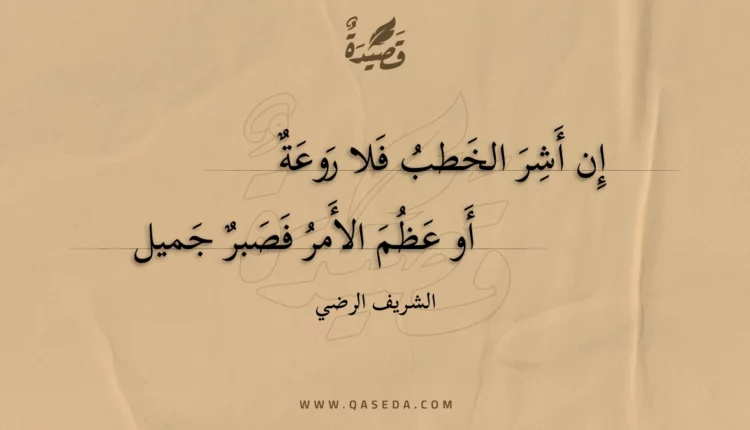 قَصِيدَةٌ
إِن أَشِرَ الخَطبُ فَلا رَوعَةٌ
أَو عَظُمَ الأَمرُ فَصَبرٌ جَميل
الشريف الرضي
WWW.QASEDA.COM